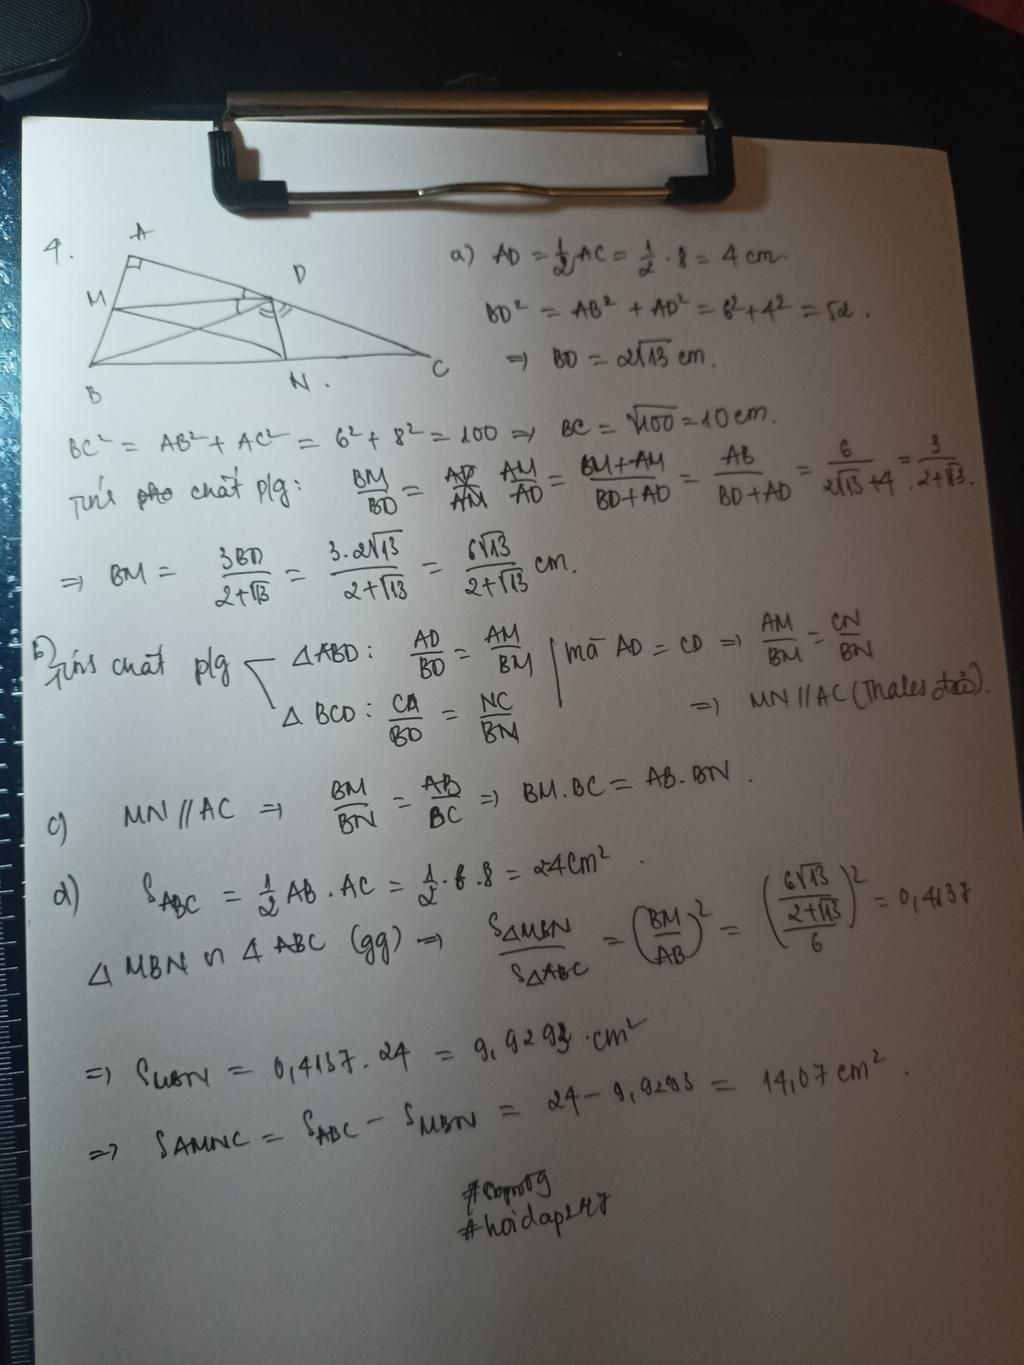 4.
A
M
D
B
N.
C
a) AD = 1/2 AC = 1/2 · 8 = 4 cm.
BD² = AB² + AD² = 6² + 4² = 52.
⇒ BD = 2√13 cm.
BC² = AB² + AC² = 6² + 8² = 100 ⇒ BC = √100 = 10 cm.
chất p/g: BM/BD = AM/AD = (BM+AM)/(BD+AD) = AB/(BD+AD) = 6/(2√13+4) = 3/(2+√13).
⇒ BM = 3BD/(2+√13) = 3.2√13/(2+√13) = 6√13/(2+√13) cm.
b) Tính chất p/g
△ABD: AD/BD = AM/BM
△BCD: CD/BD = NC/BN
mà AD = CD ⇒ AM/BM = CN/BN
⇒ MN // AC (Thales đảo).
c) MN // AC ⇒ BM/BN = AB/BC ⇒ BM.BC = AB.BN.
d) S_ABC = 1/2 AB.AC = 1/2 . 6 . 8 = 24 cm².
△MBN ∽ △ABC (gg) ⇒ S△MBN/S△ABC = (BM/AB)² = ((6√13/(2+√13))/6)² = 0,4137
⇒ S_MBN = 0,4137.24 = 9,9293 cm²
⇒ S_AMNC = S_ABC − S_MBN = 24 − 9,9293 = 14,07 cm².
#hoidap247